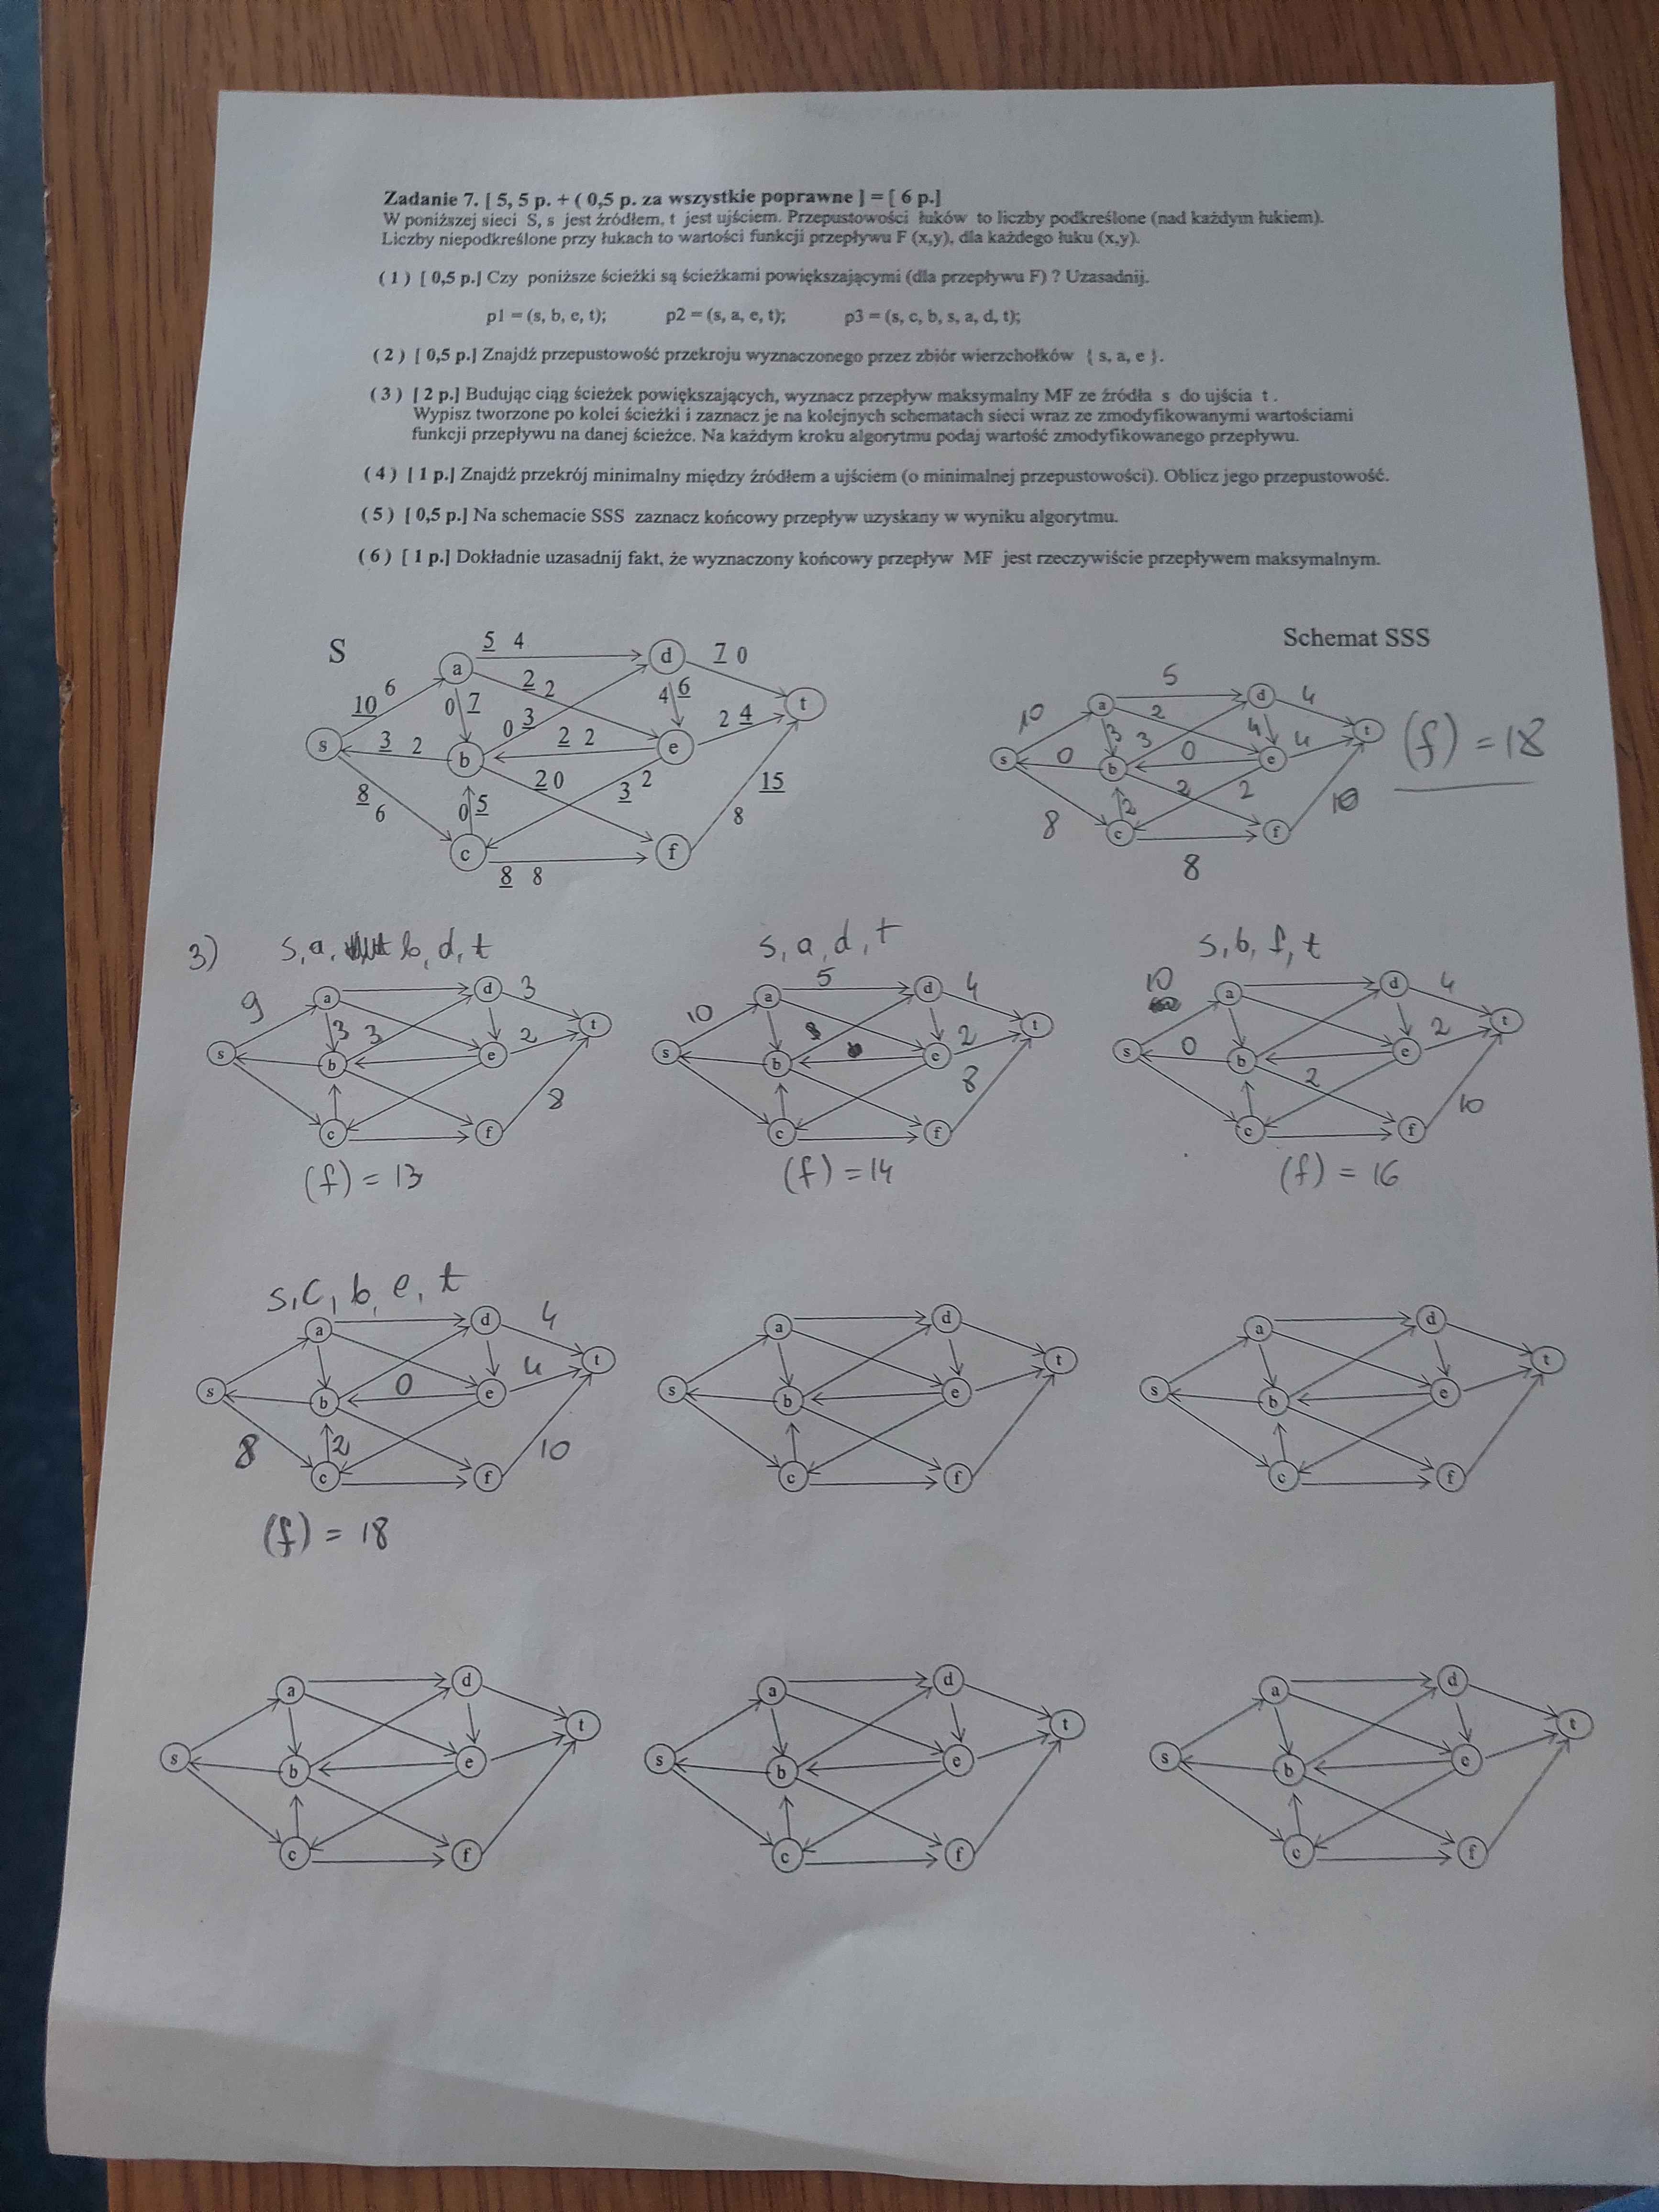 Zadanie 7. [ 5, 5 p. + ( 0,5 p. za wszystkie poprawne ] = [ 6 p.]
W poniższej sieci S, s jest źródłem, t jest ujściem. Przepustowości łuków to liczby podkreślone (nad każdym łukiem).
Liczby niepodkreślone przy łukach to wartości funkcji przepływu F (x,y), dla każdego łuku (x,y).
( 1 ) [ 0,5 p.] Czy poniższe ścieżki są ścieżkami powiększającymi (dla przepływu F) ? Uzasadnij.
p1 = (s, b, e, t); p2 = (s, a, e, t); p3 = (s, c, b, s, a, d, t);
( 2 ) [ 0,5 p.] Znajdź przepustowość przekroju wyznaczonego przez zbiór wierzchołków { s, a, e }.
( 3 ) [ 2 p.] Budując ciąg ścieżek powiększających, wyznacz przepływ maksymalny MF ze źródła s do ujścia t .
Wypisz tworzone po kolei ścieżki i zaznacz je na kolejnych schematach sieci wraz ze zmodyfikowanymi wartościami
funkcji przepływu na danej ścieżce. Na każdym kroku algorytmu podaj wartość zmodyfikowanego przepływu.
( 4 ) [ 1 p.] Znajdź przekrój minimalny między źródłem a ujściem (o minimalnej przepustowości). Oblicz jego przepustowość.
( 5 ) [ 0,5 p.] Na schemacie SSS zaznacz końcowy przepływ uzyskany w wyniku algorytmu.
( 6 ) [ 1 p.] Dokładnie uzasadnij fakt, że wyznaczony końcowy przepływ MF jest rzeczywiście przepływem maksymalnym.
S
5 4
7 0
10 6
0 7
2 2
4 6
0 3
2 4
3 2
2 2
2 0
3 2
8 6
0 5
15
8
8 8
s a b c d e f t
Schemat SSS
5
10
2
4
3
3
4
4
0
0
2
2
8
2
10
8
s a b c d e f t
(f) = 18
3)
s, a, b, d, t
9
3
3
3
2
8
s a b c d e f t
(f) = 13
s, a, d, t
10
5
4
2
8
s a b c d e f t
(f) = 14
s, b, f, t
10
4
0
2
2
10
s a b c d e f t
(f) = 16
s, c, b, e, t
4
0
4
8
2
10
s a b c d e f t
(f) = 18
s a b c d e f t
s a b c d e f t
s a b c d e f t
s a b c d e f t
s a b c d e f t